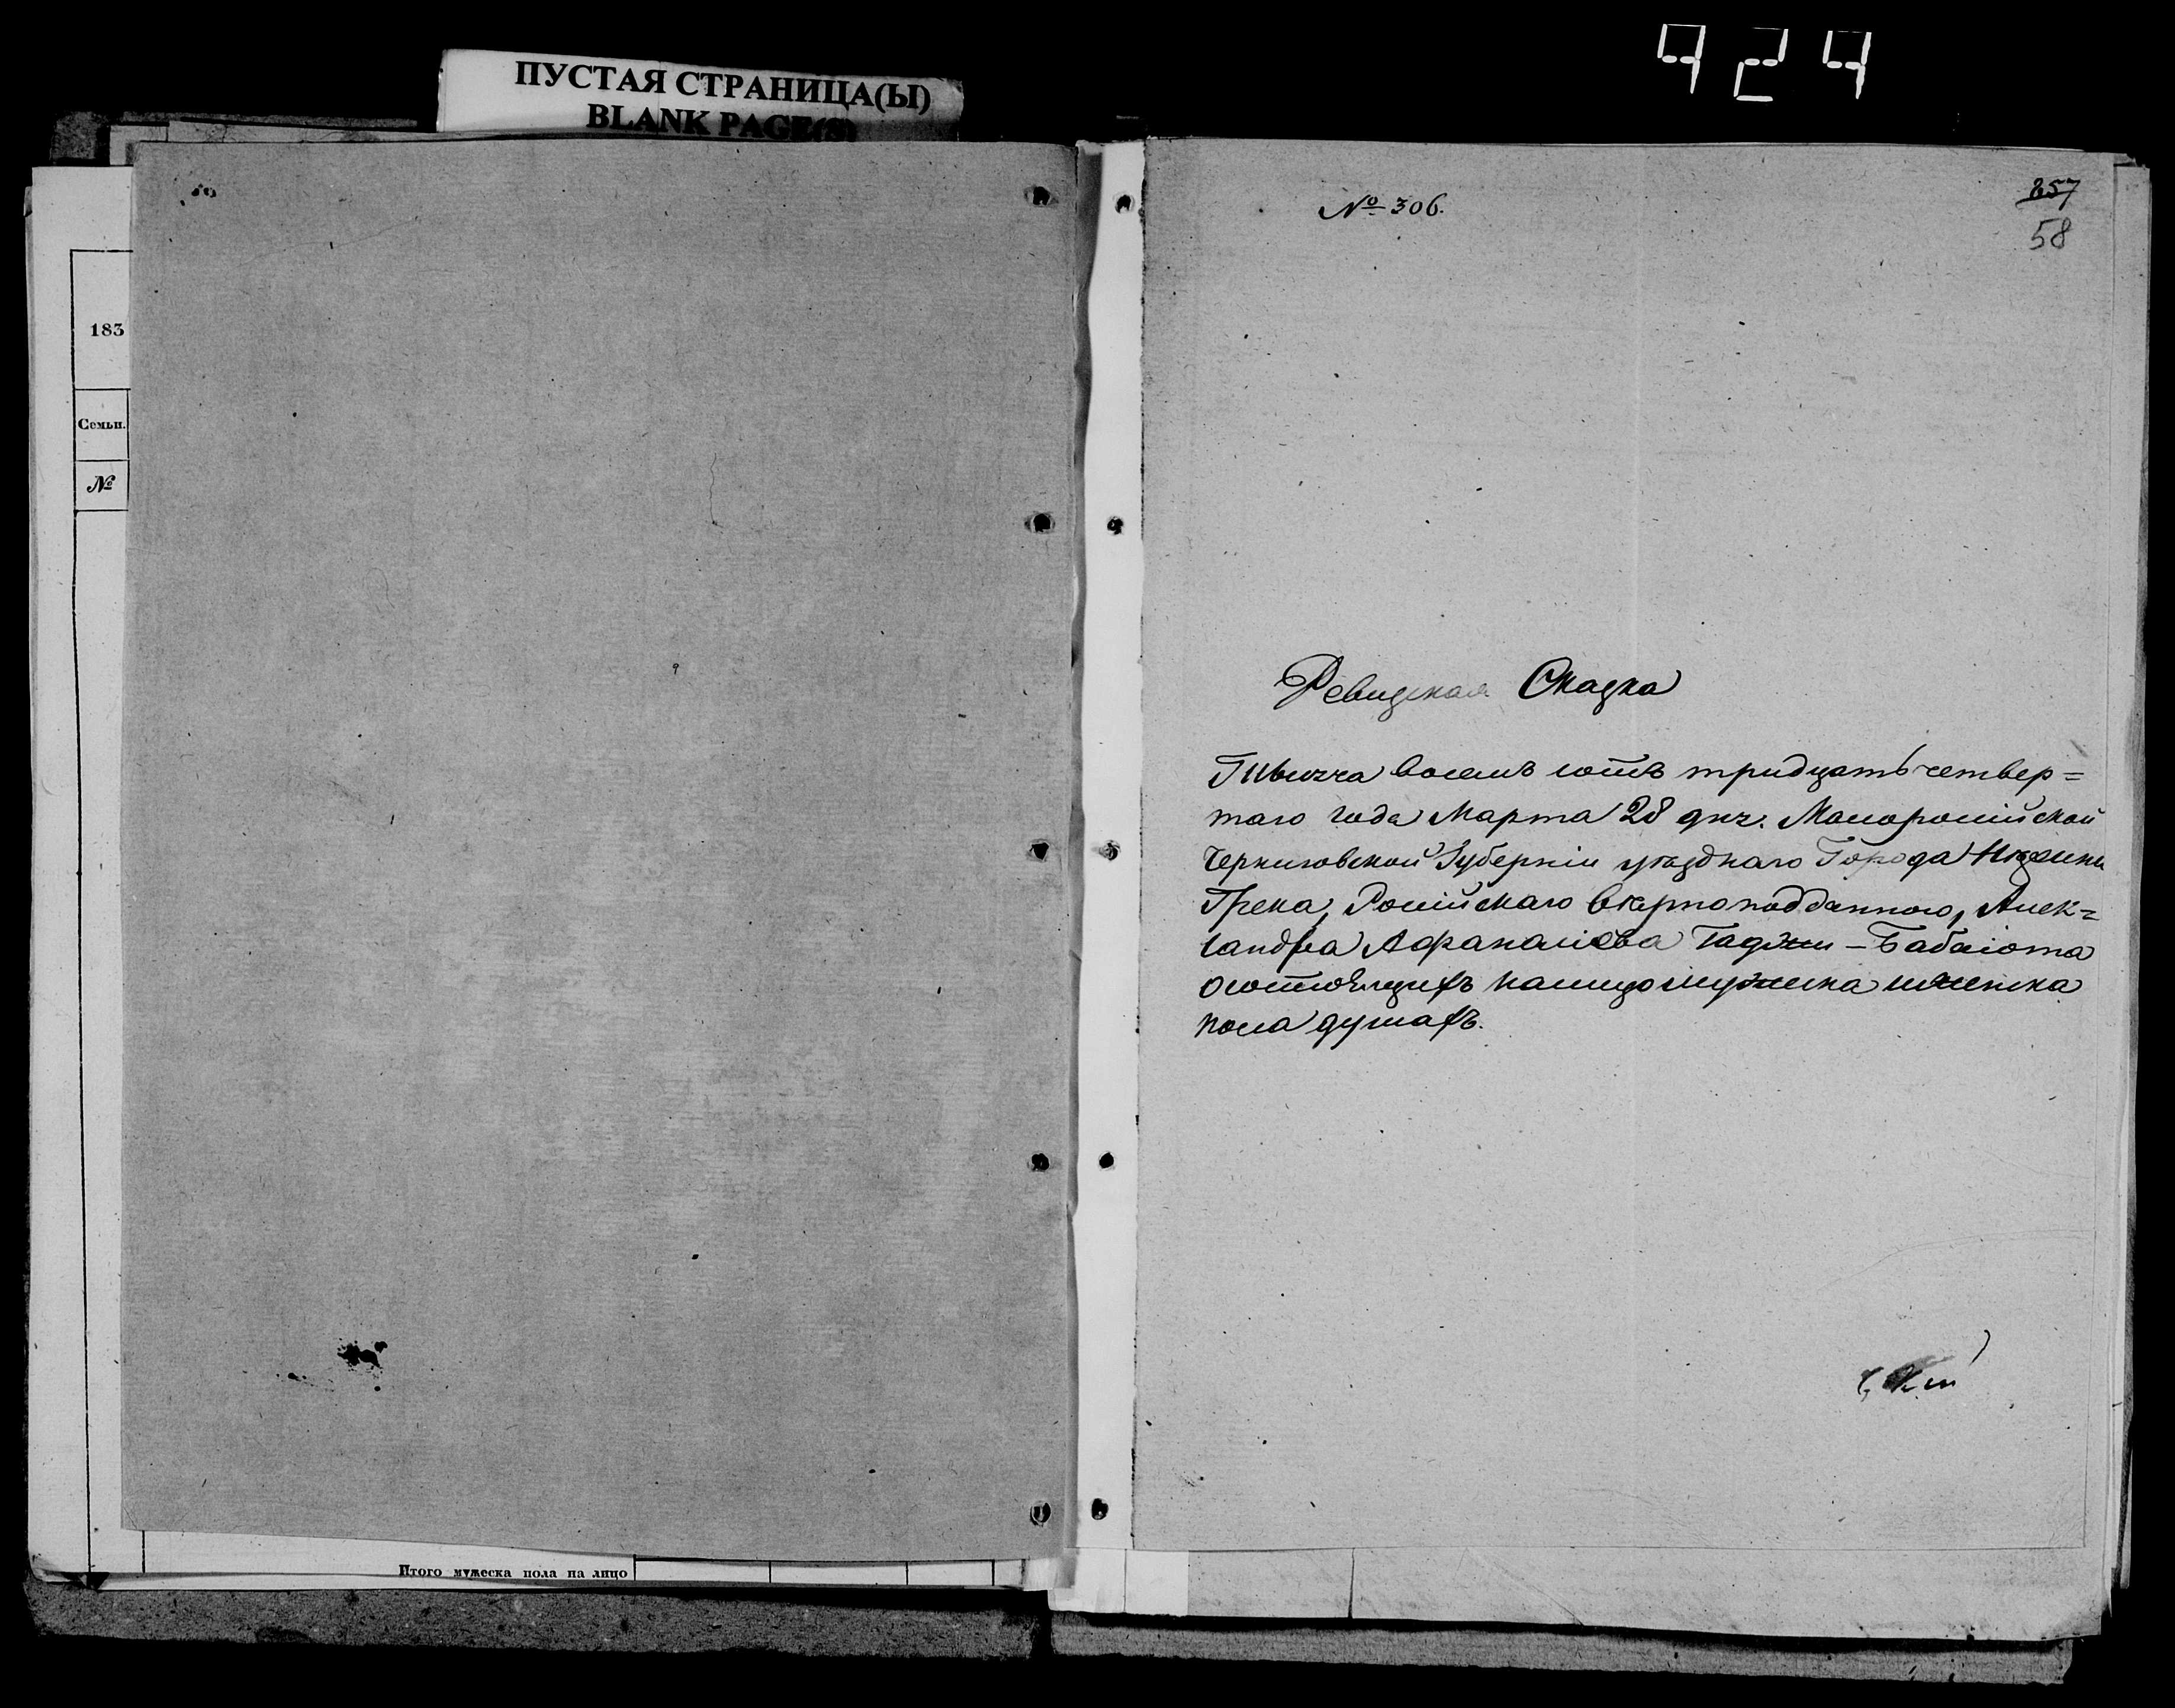 ПУСТАЯ СТРАНИЦА(Ы)
BLANK PAGE(S)
424
183
Семьи.
№
Итого мужеска пола на лицо
№ 306.
257
58
Ревизская Сказка
Тысеча восемь сотъ тридцать четвер=
таго года Марта 28 дня. Малоросійской
Черниговской Губерніи уѣзднаго Города Нѣжина
Грека, Російскаго вѣрноподданного, Алек=
сандра Афанасіева Гаджи-Бабаіота
О состоящихъ налицо мужеска и женска
пола душахъ.